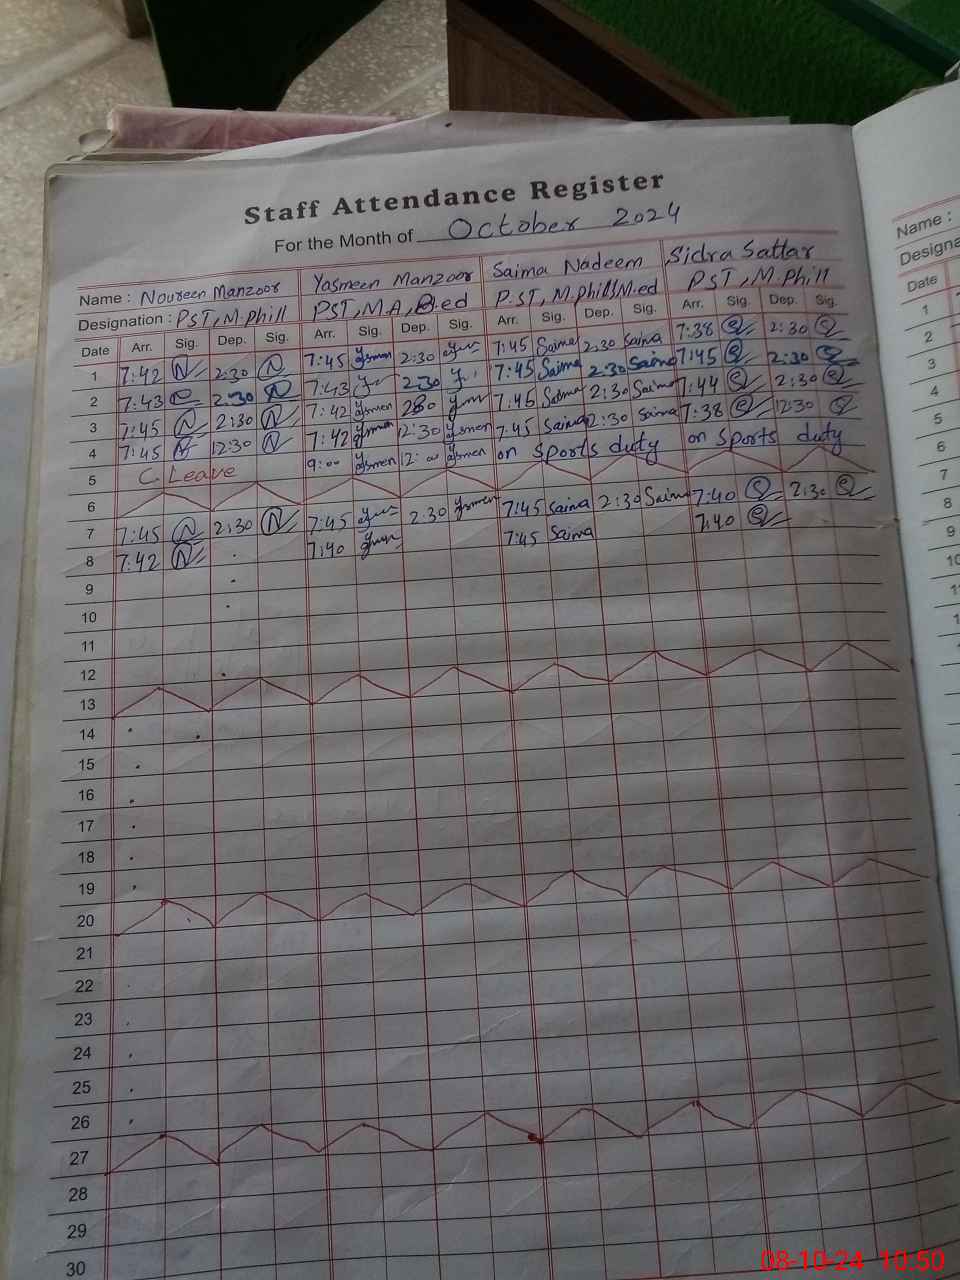 Staff Attendance Register
For the Month of October 2024
Name : Noureen Manzoor Yasmeen Manzoor Saima Nadeem Sidra Sattar Name :
Designation : PST, M.Phill PST, M.A, B.ed P.ST, M.phill, M.ed PST, M.Phill Designa
Date Arr. Sig. Dep. Sig. Arr. Sig. Dep. Sig. Arr. Sig. Dep. Sig. Arr. Sig. Dep. Sig. Date
1 7:42 N 2:30 N 7:45 Ysmen 2:30 7:45 Saima 2:30 Saima 7:38 S 2:30 S 1
2 7:43 2:30 N 7:43 2:30 7:45 Saima 2:30 Saima 7:45 S 2:30 S 2
3 7:45 N 2:30 N 7:42 Ysmen 2:30 7:45 Saima 2:30 Saima 7:44 S 2:30 S 3
4 7:45 N 12:30 N 7:42 Ysmen 12:30 Ysmen 7:45 Saima 12:30 Saima 7:38 S 12:30 S 4
5 C. Leave 9:00 Ysmen 12:00 Ysmen on Sports duty on Sports duty 5
6 6
7 7:45 N 2:30 N 7:45 2:30 Ysmen 7:45 Saima 2:30 Saima 7:40 S 2:30 S 7
8 7:42 N 7:40 7:45 Saima 7:40 S 8
9 9
10 10
11
12
13
14
15
16
17
18
19
20
21
22
23
24
25
26
27
28
29
30
08-10-24 10:50